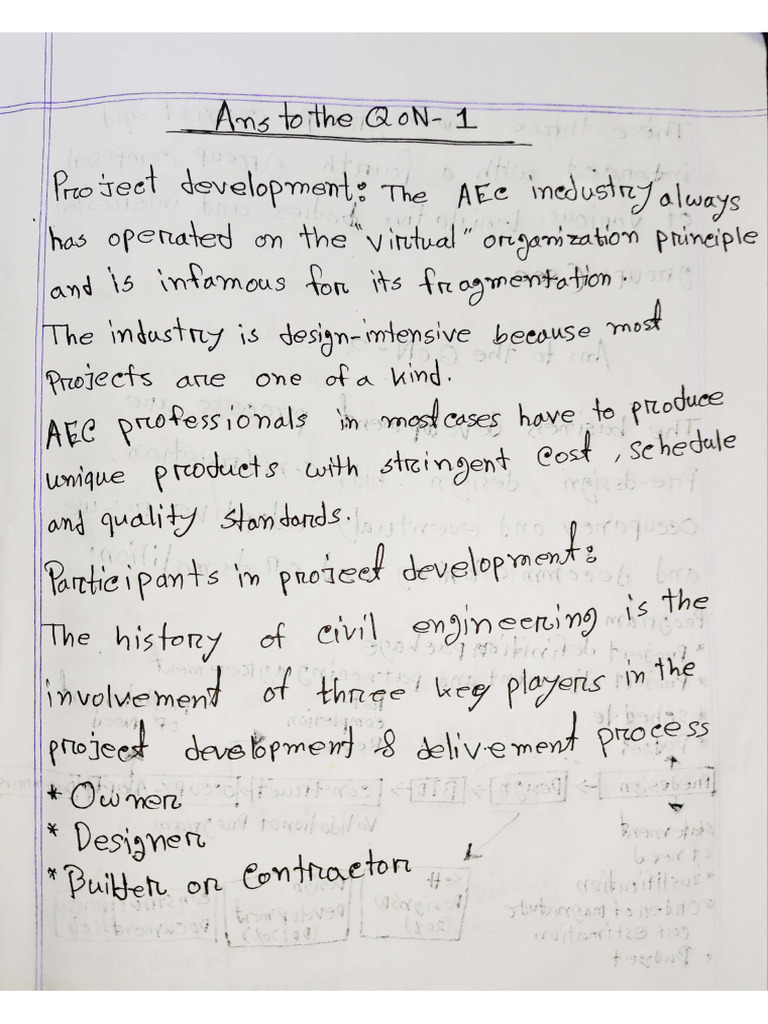 Ans to the Q oN- 1
Project development: The AEC industry always
has operated on the "virtual" organization principle
and is infamous for its fragmentation.
The industry is design-intensive because most
Projects are one of a kind.
AEC professionals in most cases have to produce
unique products with stringent cost, schedule
and quality standards.
Participants in project development:
The history of civil engineering is the
involvement of three key players in the
project development & delivement process
* Owner
* Designer
* Builder or contractor